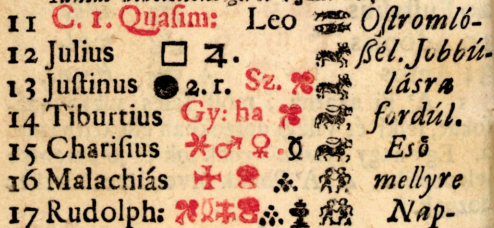 11 C. 1. Quasim: Leo Oſtromló-
12 Julius □ ♃. ßél. Jobbú-
13 Juſtinus ● 2. 1. Sz. lásra
14 Tiburtius Gy: ha fordúl.
15 Chariſius * ♂ ♀. ☿ Eső
16 Malachiás ✠ mellyre
17 Rudolph: Nap-